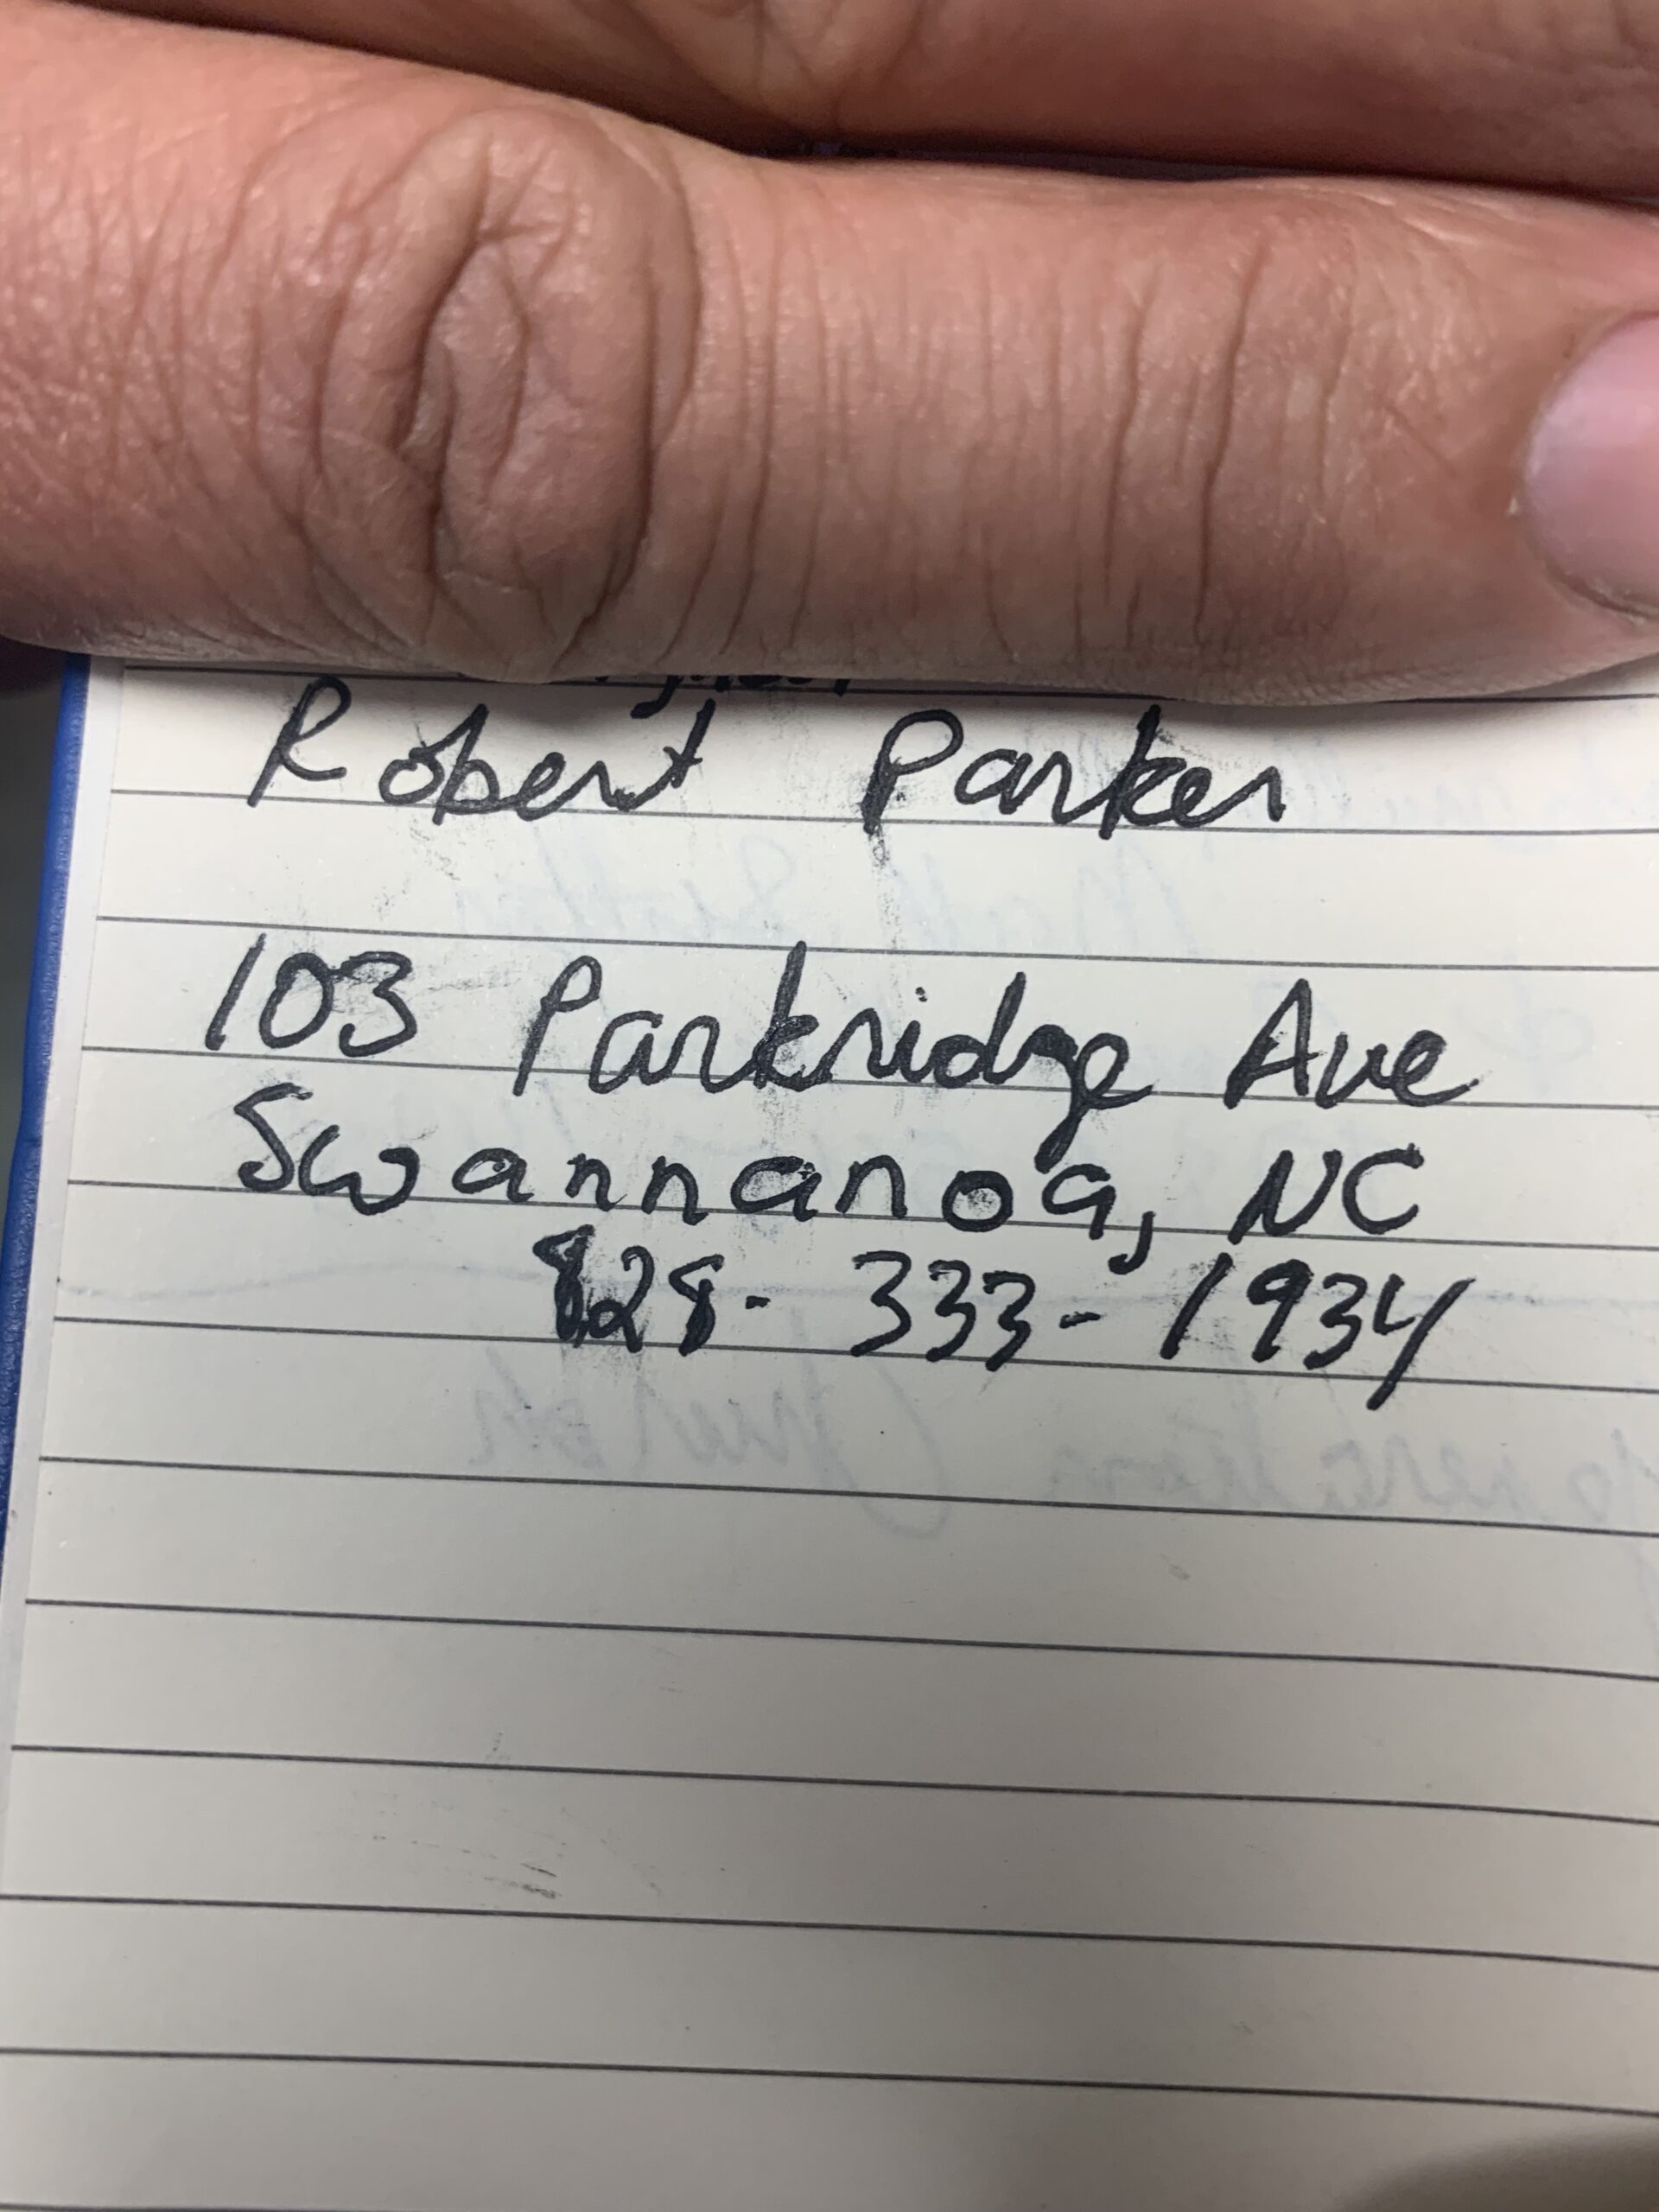 Robert Parker
103 Parkridge Ave
Swannanoa, NC
828-333-1934